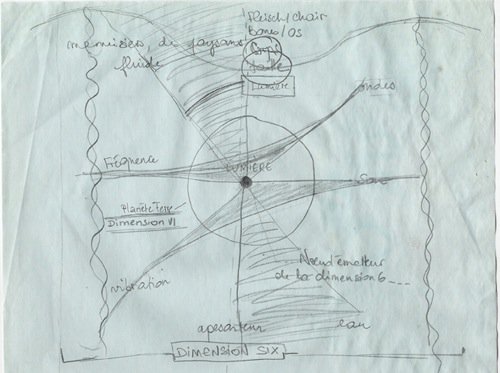 Fleisch/chair
Bones/os
memoires, de paysans
fluide
Lumière
ondes
Fréquence
LUMIERE
Sons
Planète Terre
Dimension VI
Noeud émetteur
de la dimension 6
vibration
apesanteur
eau
DIMENSION SIX